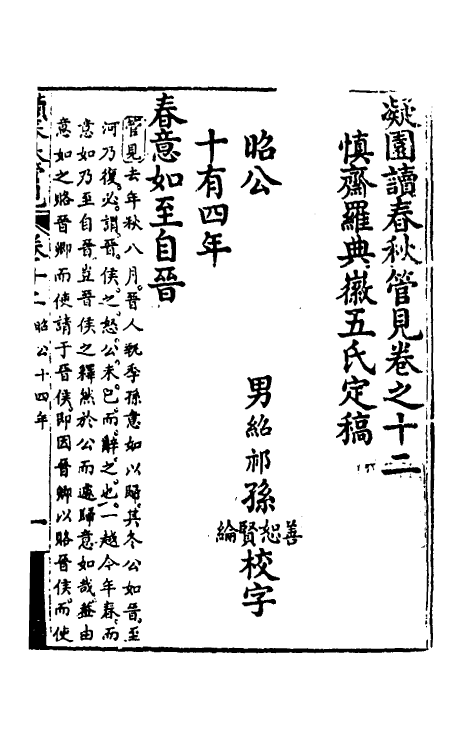 凝園讀春秋管見卷之十二
慎齋羅典徽五氏定稿
昭公
男紹祁孫善恕賢綸校字
十有四年
春意如至自晉
管見去年秋八月晉人執季孫意如以歸其冬公如晉至
河乃復必謂晉侯之怒公未已而辭之也一越今年春而
意如乃至自晉豈晉侯之釋然於公而遽歸意如哉蓋由
意如之賂晉卿而使請于晉侯即因晉卿以賂晉侯而使
卷十二 昭公十四年 一